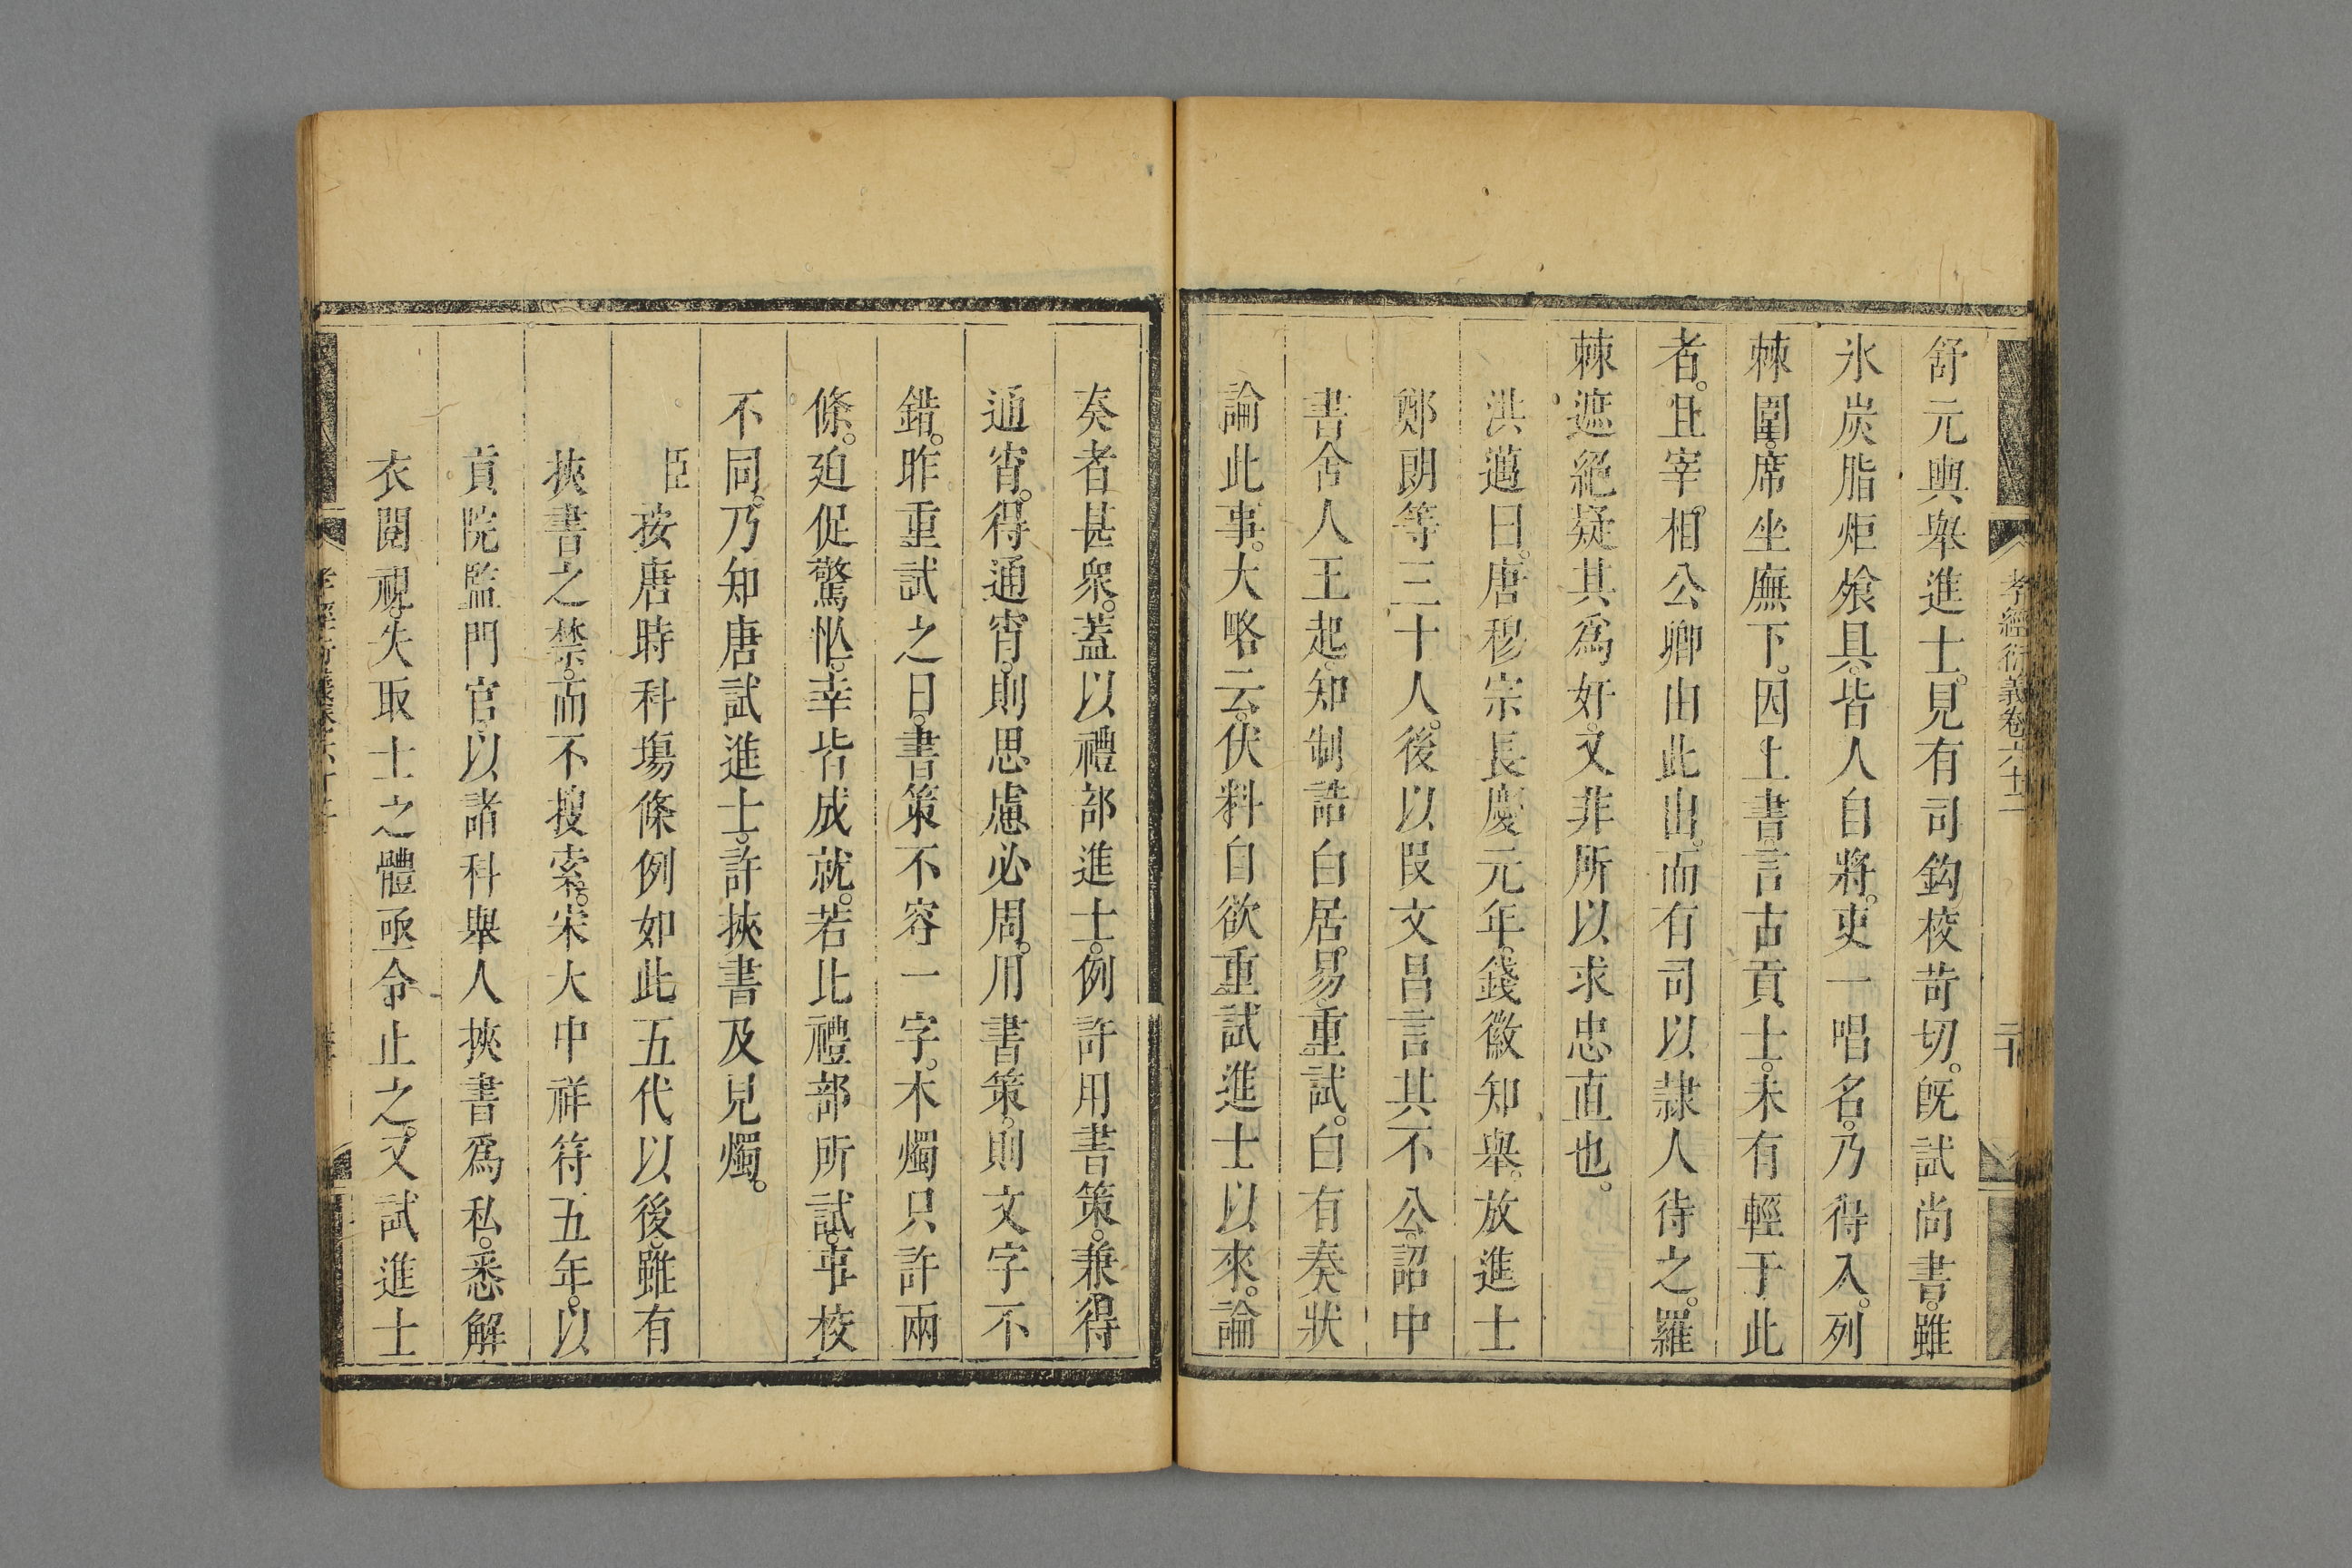 孝經衍義卷六十二
舒元輿舉進士。見有司鈎校苛切。既試尚書。雖
氷炭脂炬飧具。皆人自將。吏一唱名。乃得入。列
棘圍。席坐廡下。因上書。言古貢士。未有輕于此
者。且宰相公卿由此出。而有司以隷人待之。羅
棘遮絕疑其爲奸。又非所以求忠直也。
洪邁曰。唐穆宗長慶元年。錢徽知舉。放進士
鄭朗等三十人。後以段文昌言其不公。詔中
書舍人王起。知制誥白居。易。重試。白有奏狀
論此事。大略云。伏料自欲重試進士以來。論
奏者甚衆。蓋以禮部進士。例許用書策。兼得
通宵。得通宵。則思慮必周。用書策。則文字不
錯。昨重試之日。書策不容一字。木燭只許兩
條。廹促驚忙。幸皆成就。若比禮部所試。事校
不同。乃知唐試進士。許挾書及見燭。
臣按唐時科塲條例如此五代以後。雖有
挾書之禁。而不搜索。宋大中祥符五年。以
貢院監門官。以諸科舉人挾書爲私。悉解
衣閱視。失取士之體亟令止之。又試進士